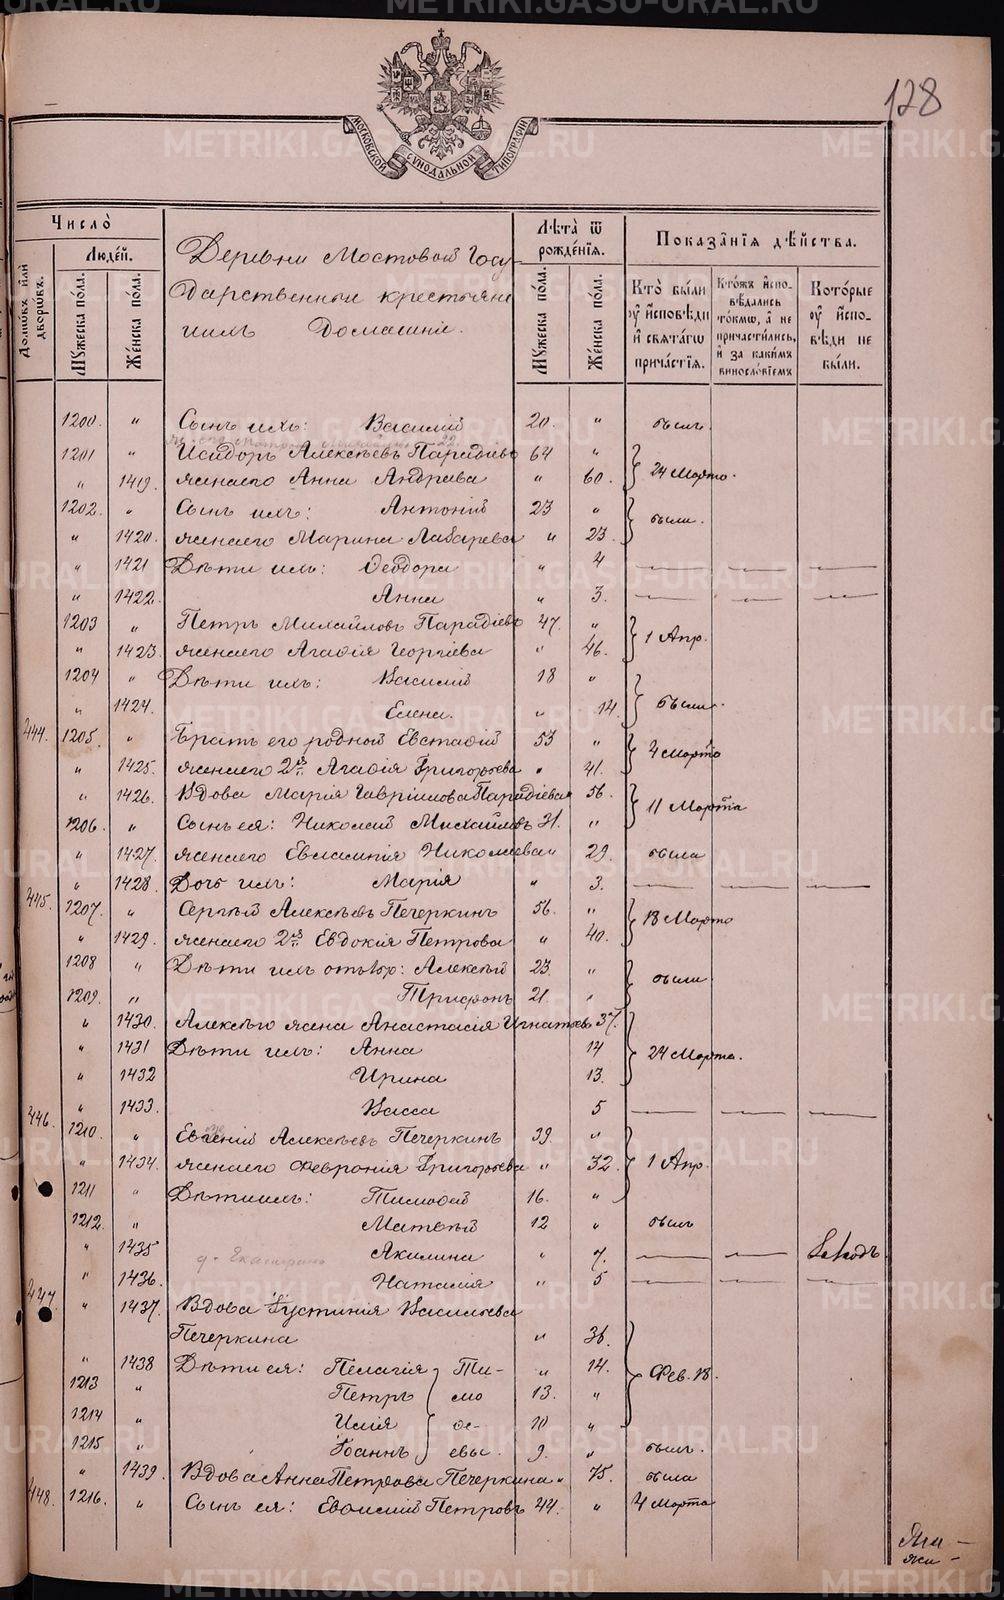 128
МОСКОВСКОЙ СУНОДАЛЬНОЙ ТИПОГРАФІИ
Число̀
Людей.
Домѡвъ или дворѡвъ.
Мужеска пола.
Женска пола.
Деревни Мостовой Госу-
дарственныи крестьяне
и ихъ Домашніе.
Лѣта ѿ рожденія.
Мужеска пола.
Женска пола.
Показанія дѣйства.
Кто были у исповѣди и святагѡ причастія.
Ктожъ исповѣдались токмѡ, а не причастились, и за какимъ винословіемъ
Которые у исповѣди не были.
1200. " Сынъ ихъ: Василій 20. " былъ.
1201 " Исидоръ Алексѣевъ Парадіевъ 64 "
" 1419. жена его Анна Андреева " 60. 24 Марта.
1202. " Сынъ ихъ: Антоній 23 "
" 1420. жена его Марина Лазарева " 23. были.
" 1421 Дѣти ихъ: Ѳеодора " 4 — — —
" 1422. Анна " 3. — — —
1203 " Петръ Михайловъ Парадіевъ 47. "
" 1423. жена его Агафія Георгіева " 46. 1 Апр.
1204 " Дѣти ихъ: Василій 18 "
" 1424. Елена. " 14. были.
444. 1205. " Братъ его родной Евстафій 53 "
" 1425. жена его 2я Агафія Григорьева " 41. 4 Марта
" 1426. Вдова Марія Гавріилова Парадіева " 56.
1206. " Сынъ ея: Николай Михайловъ 31. " 11 Марта
" 1427. жена его Евлампія Николаева " 29. была
" 1428. Дочь ихъ: Марія " 3. — — —
445. 1207. " Сергѣй Алексѣевъ Печеркинъ 56. "
" 1429. жена его 2я Евдокія Петрова " 40. 18 Марта
1208 " Дѣти ихъ Алексѣй 23. "
1209. " Трифонъ 21. " были
" 1430. Алексѣя жена Анастасія Игнатьева 37.
" 1431 Дѣти ихъ: Анна 14 24 Марта.
" 1432 Ирина 13.
" 1433. Васса 5 — — —
446. 1210. " Евгеній Алексѣевъ Печеркинъ 39. "
" 1434. жена его Феврониія Григорьева " 32. 1 Апр.
1211 " Дѣти ихъ: Тимофей 16. "
1212. " Матвѣй 12 " былъ
" 1435 Акилина " 7. — —
" 1436. Наталія " 5 — — —
447. " 1437. Вдова Іустинія Васильева
Печеркина " 36.
" 1438 Дѣти ея: Пелагія Ти- " 14. Фев. 18.
1213 " Петръ мо 13. "
1214 " Илія ѳе- 10 "
1215. " Іоаннъ евы. 9. " былъ.
" 1439. Вдова Анна Петрова Печеркина " 75. была
448. 1216. " Сынъ ея: Евфимій Петровъ 44. " 4 Марта
METRIKI.GASO-URAL.RU